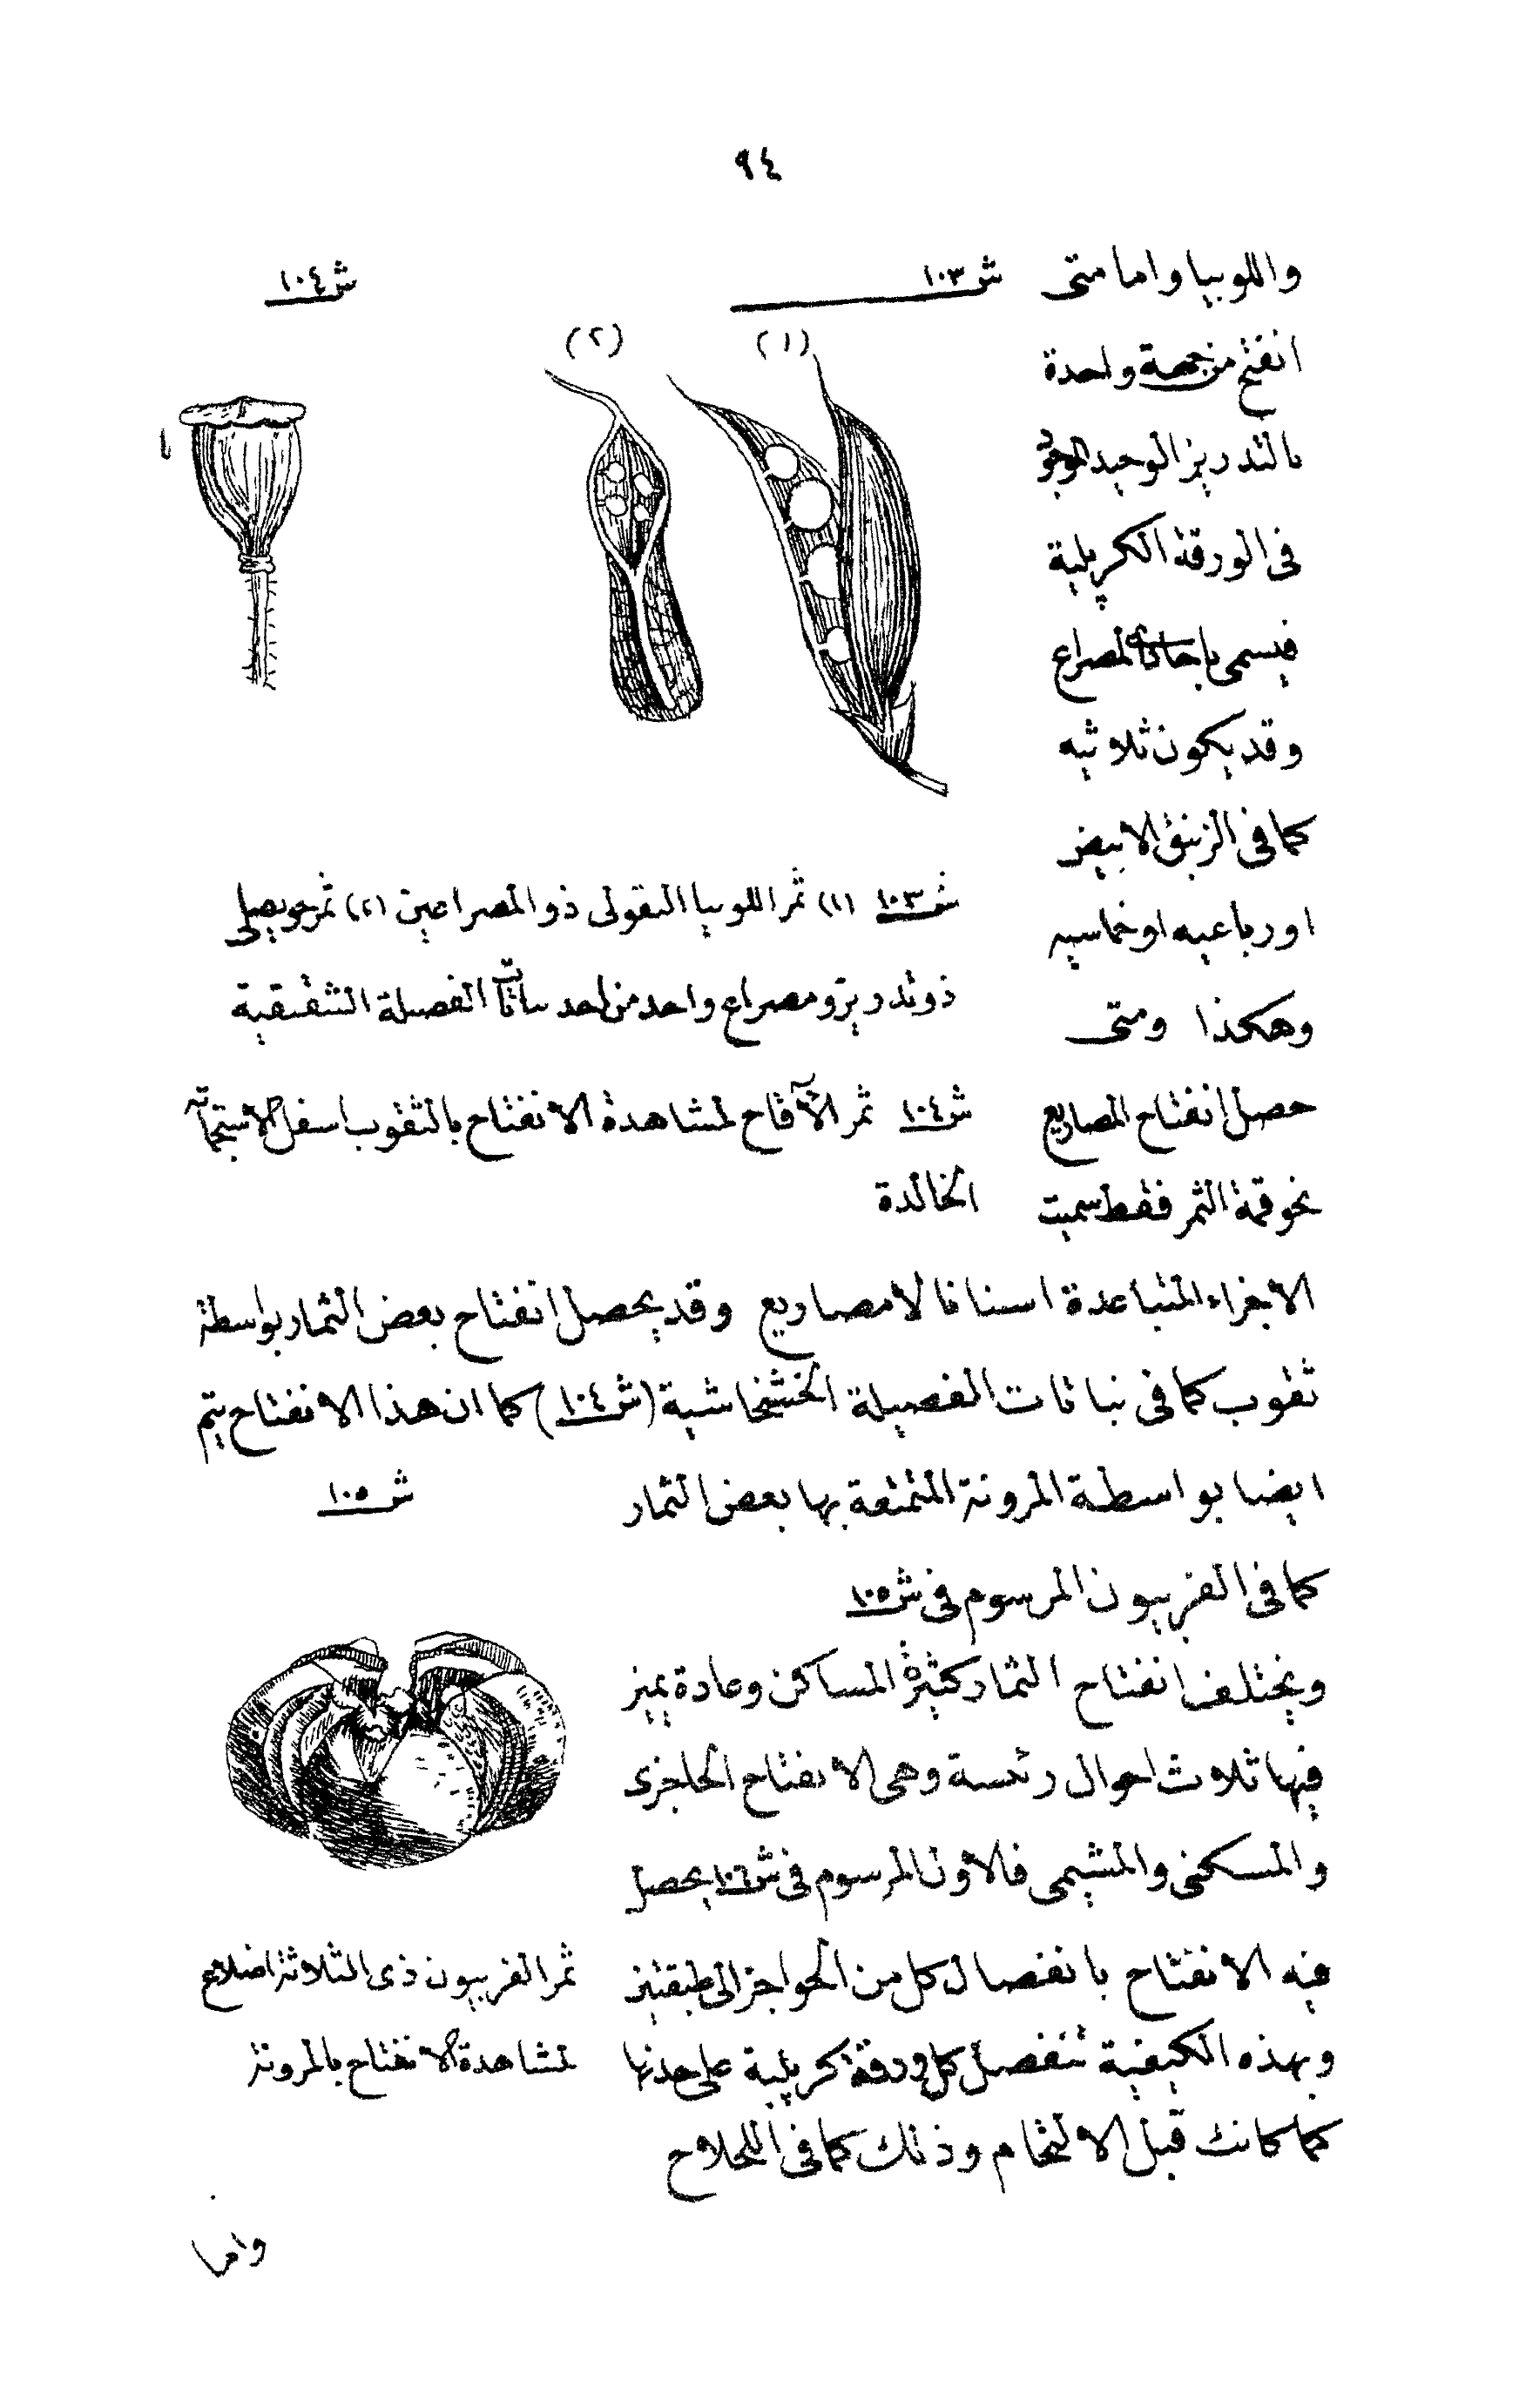 ٩٤
واللوبيا واما متى
انفتح من جهة واحدة
بالتدريز الوحيد الموجود
فى الورقة الكربلية
فيسمى باحادى المصراع
وقد يكون ثلاثيه
كما فى الزنبق الابيض
او رباعيه او خماسيه
وهكذا ومتى
حصل انفتاح المصاريع
نحو قمة الثمر فقط سميت
ش ١٠٣
(١)
(٢)
ش ١٠٤
ا
ش ١٠٣ (١) ثمر اللوبيا البقولى ذو المصراعين (٢) ثمر حويصلى
ذو تدريز ومصراع واحد من احد نباتات الفصيلة الشقيقية
ش ١٠٤ ثمر الآقاح لمشاهدة الانفتاح بالثقوب اسفل الاستجماته
الخالدة
الاجزاء المتباعدة اسنانا لا مصاريع وقد يحصل انفتاح بعض الثمار بواسطة
ثقوب كما فى نباتات الفصيلة الخشخاشية (ش ١٠٤) كما ان هذا الانفتاح يتم
ايضا بواسطة المرونة المتمتعة بها بعض الثمار
كما فى الفربيون المرسوم فى ش ١٠٥
ويختلف انفتاح الثمار كثيرة المساكن وعادة يميز
فيها ثلاث احوال رئسة وهى الانفتاح الحاجزى
والمسكنى والمشيمى فالاول المرسوم فى ش ١٠٦ يحصل
فيه الانفتاح بانفصال كل من الحواجز الى طبقتين
وبهذه الكيفية تنفصل كل ورقة كربلية على حدتها
كما كانت قبل الالتحام وذلك كما فى اللحلاح
ش ١٠٥
ثمر الفربيون ذى الثلاثة اضلاع
لمشاهدة الانفتاح بالمرونة
واما